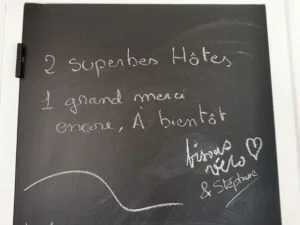 2 superbes Hôtes
1 grand merci
encore, À bientôt
bisous
véro
& Stéphane